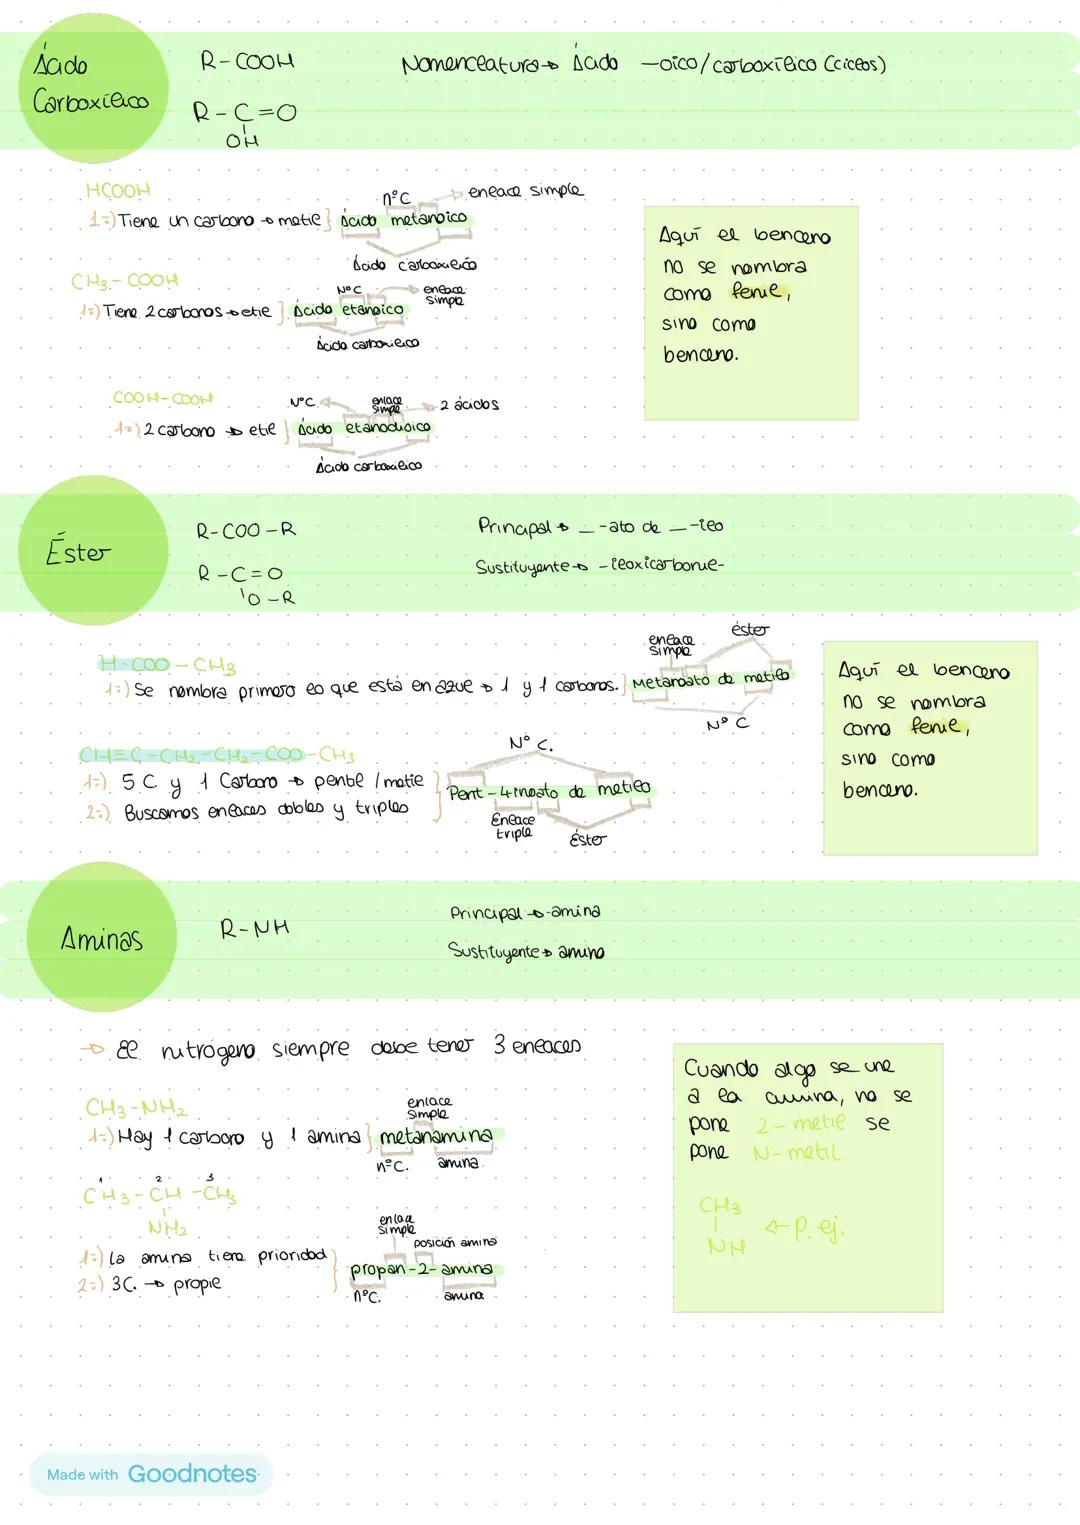 Ácido
Carboxílico
R-COOH
Nomenclatura→ Ácido —oico/carboxílico (ciclos)
R-C=O
OH
HCOOH
1º) Tiene un carbono → metil
nºC
enlace simple
Ácido metanoico
Ácido carboxílico
CH3-COOH
1º) Tiene 2 carbonos → etil
NºC
enlace
simple
Ácido etanoico
Ácido carboxílico
COOH-COOH
1º) 2 carbono → etil
NºC
enlace
simple
2 ácidos
Ácido etanodioico
Ácido carboxílico
Aquí el benceno
no se nombra
como fenil,
sino como
benceno.
Éster
R-COO-R
R-C=O
O-R
Principal → _-ato de _-ilo
Sustituyente → -iloxicarbonil-
H-COO-CH3
1º) Se nombra primero lo que está en azul → 1 y 1 carbonos.
enlace
simple
éster
Metanoato de metilo
Nº C
CH≡C-CH2-CH2-COO-CH3
1º) 5 C y 1 Carbono → pentil / metil
2º) Buscamos enlaces dobles y triples
Nº C.
Pent-4-inoato de metilo
Enlace
triple
Éster
Aquí el benceno
no se nombra
como fenil,
sino como
benceno.
Aminas
R-NH
Principal → -amina
Sustituyente → amino
→ El nitrógeno siempre debe tener 3 enlaces
CH3-NH2
1º) Hay 1 carbono y 1 amina
enlace
simple
metanamina
nºC.
amina
1 2 3
CH3-CH-CH3
NH2
1º) La amina tiene prioridad
2º) 3C. → propil
enlace
simple
posición amina
propan-2-amina
nºC.
amina
Cuando algo se une
a la amina, no se
pone 2-metil se
pone N-metil
CH3
NH
←p. ej.
Made with Goodnotes